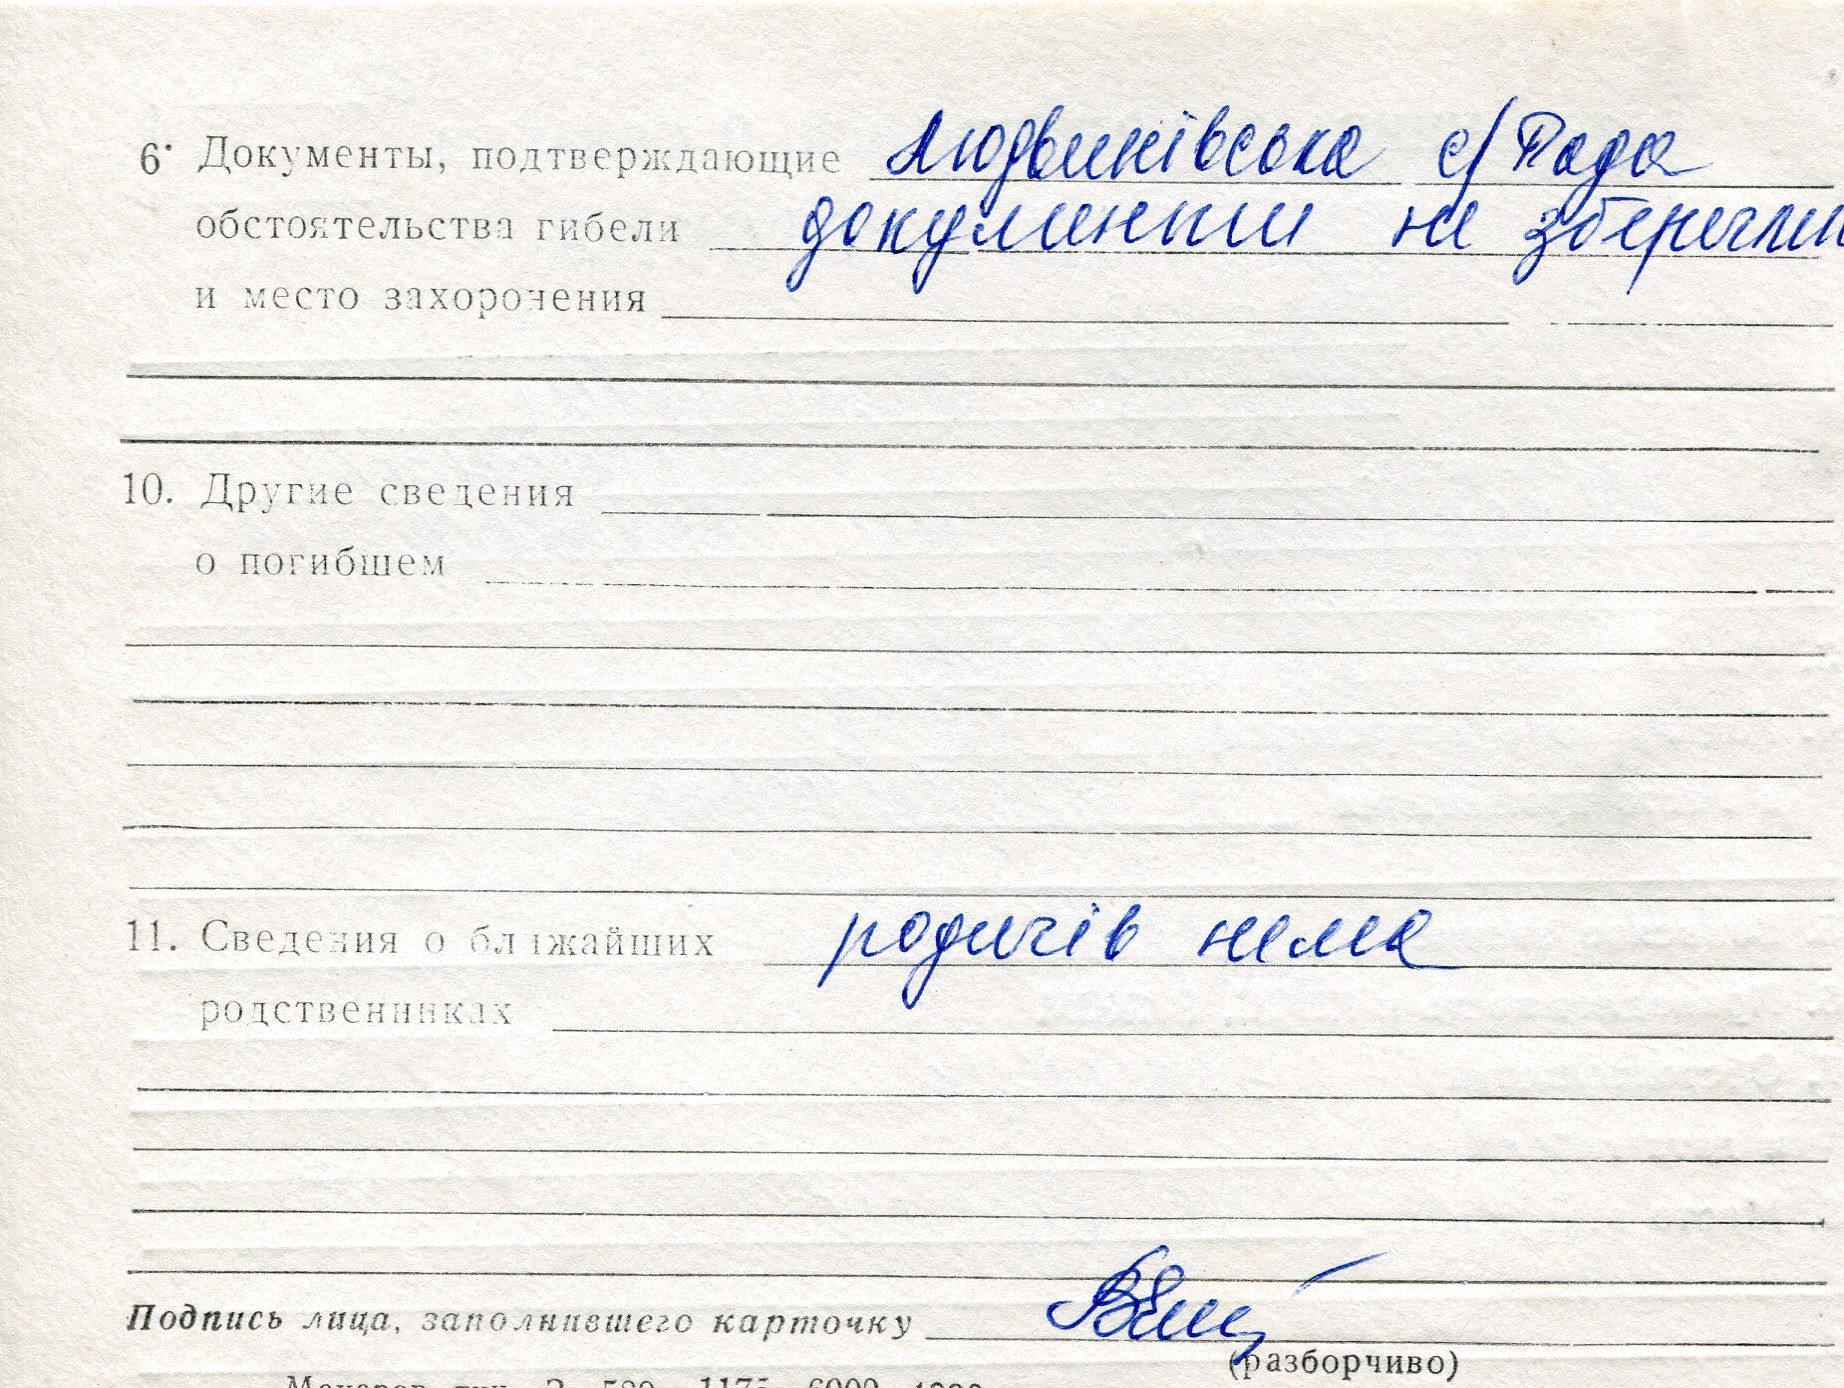 6. Документы, подтверждающие Людвинівська с/Рада
обстоятельства гибели документи не зберегли
и место захоронения
10. Другие сведения
о погибшем
11. Сведения о ближайших родичів нема
родственниках
Подпись лица, заполнившего карточку
(разборчиво)